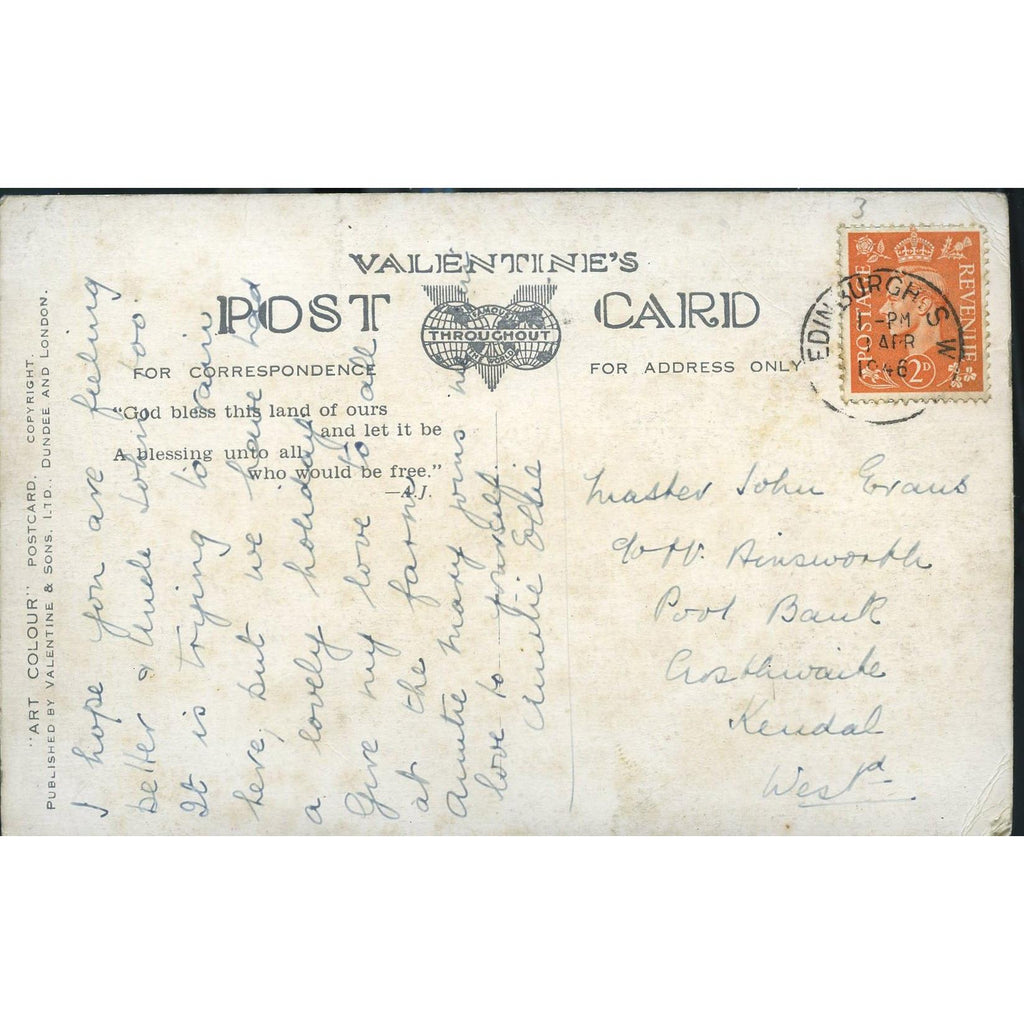 3
VALENTINE'S
POST CARD
FAMOUS
THROUGHOUT
THE WORLD
FOR CORRESPONDENCE
FOR ADDRESS ONLY
"God bless this land of ours
and let it be
A blessing unto all
who would be free."
—A.J.
POSTAGE REVENUE
2D
EDINBURGH. S.W.
1 - PM
APR
1946
"ART COLOUR" POSTCARD. COPYRIGHT.
PUBLISHED BY VALENTINE & SONS. LTD., DUNDEE AND LONDON.
I hope you are feeling
better & Uncle John too.
It is trying to rain
here, but we have had
a lovely holiday.
Give my love to all
at the farm.
Auntie Mary joins me in
love to yourself.
Auntie Elsie
Master John Evans
c/o W. Ainsworth
Pool Bank
Crosthwaite
Kendal
Westd